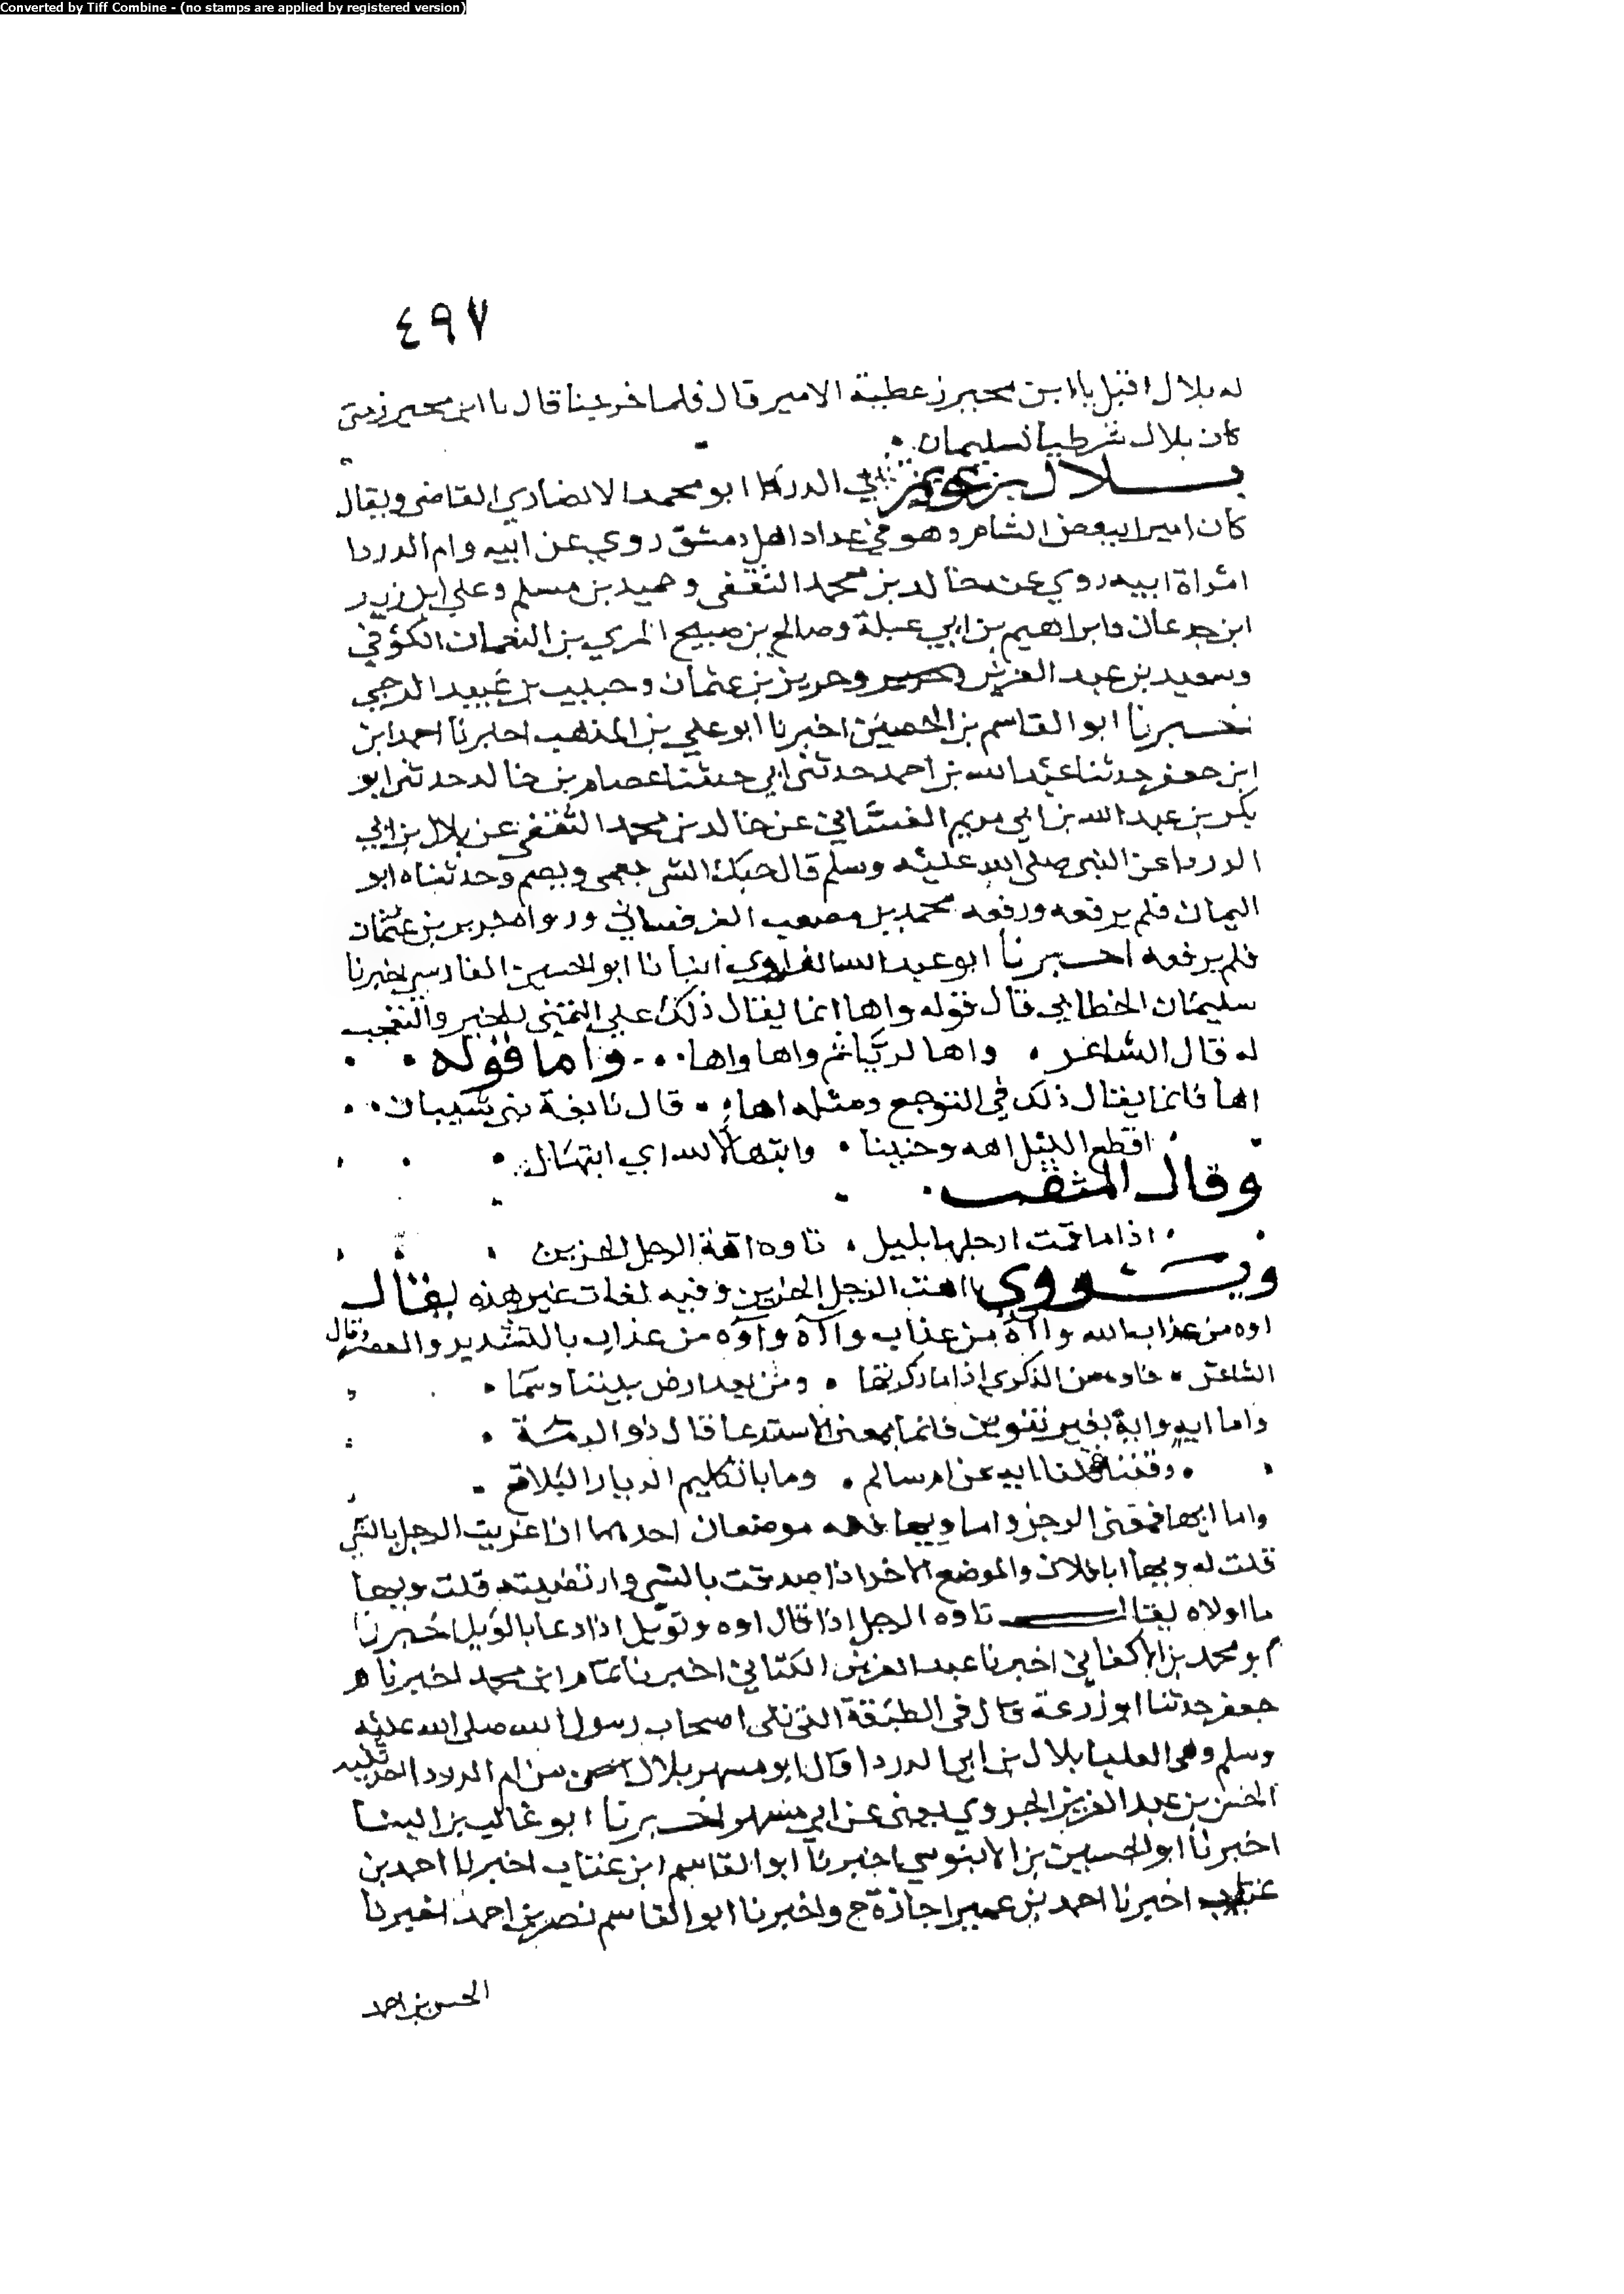 Converted by Tiff Combine - (no stamps are applied by registered version)
٤٩٧
له بلال اقبل يا ابن محيريز عطية الامير قال فلما خرجنا قال يا ابن محيريز متى
كان بلال شرطيا لسليمان
بلال بن عويمر ابي الدردا ابو محمد الانصاري القاضي ويقال
كان اميرا ببعض الشام وهو في عداد اهل دمشق روي عن ابيه وام الدردا
امراة ابيه روي عنه خالد بن محمد الثقفي وحميد بن مسلم وعلي ابن زيد
ابن جدعان وابراهيم بن ابي عبلة وصالح بن صبيح المري بن النعمان الكوفي
وسعيد بن عبد العزيز وحريز بن عثمان وحبيب بن عبيد الرحبي
اخبرنا ابو القاسم بن الحصين اخبرنا ابو علي بن المذهب اخبرنا احمد ابن
ابن جعفر حدثنا عبد الله بن احمد حدثني ابي حدثنا عصام بن خالد حدثني ابو
بكر بن عبد الله بن ابي مريم الغساني عن خالد بن محمد الثقفي عن بلال بن ابي
الدردا عن النبي صلى الله عليه وسلم قال حبك الشي يعمي ويصم وحدثناه ابو
اليمان فلم يرفعه ورفعه محمد بن مصعب القرقساني ورواه حريز بن عثمان
فلم يرفعه اخبرنا ابو عبد الله الفراوي انبانا ابو الحسين الفارسي اخبرنا
سليمان الخطابي قال قوله واها انما يقال ذلك علي التمني للخير والتعجب
له قال الشاعر واها لريا ثم واها واها واما قوله
اها فانما يقال ذلك في التوجع ومثله اهاه قال نابغة بني شيبان
اقطع الليل اهه وحنينا وابتهالا لله اي ابتهال
وقال المثقب
اذا ما قمت ارحلها بليل تاوه اهة الرجل الحزين
ويروى اهت الرجل الحزين وفيه لغات غير هذه يقال
اوه من عذاب الله واآه من عذاب واآه واوه من عذاب بالتشديد والقصر وقال
الشاعر فاوه من الذكري اذا ما ذكرتها ومن بعد ارض بيننا وسما
واما ايه واية بغير تنوين فانما بمعني الاستدعا قال ذو الرمة
وقفنا فقلنا ايه عن ام سالم وما بال تكليم الديار البلاقع
واما ايها فمعني الزجر واما ويها فله موضعان احدهما اذا اغريت الرجل بالشي
قلت له ويها ابا فلان والموضع الاخر اذا صدقت بالشي وارتضيته قلت ويها
ما اولاه يقال تاوه الرجل اذا قال اوه وتويل اذا دعا بالويل اخبرنا
ابو محمد بن الاكفاني اخبرنا عبد العزيز الكتاني اخبرنا تمام ابن محمد اخبرنا
جعفر حدثنا ابو زرعة قال في الطبقة التي تلي اصحاب رسول الله صلى الله عليه
وسلم وهي العليا بلال بن ابي الدردا قال ابو مسهر بلال اسن من ام الدردا
الحسن بن عبد العزيز الجروي يعني عن ابي مسهر اخبرنا ابو غالب بن البنا
اخبرنا ابو الحسين بن الابنوسي اخبرنا ابو القاسم ابن عتاب اخبرنا احمد بن
اخبرنا احمد بن عمير اجازة ح واخبرنا ابو القاسم نصر بن احمد اخبرنا
الحسن بن احمد